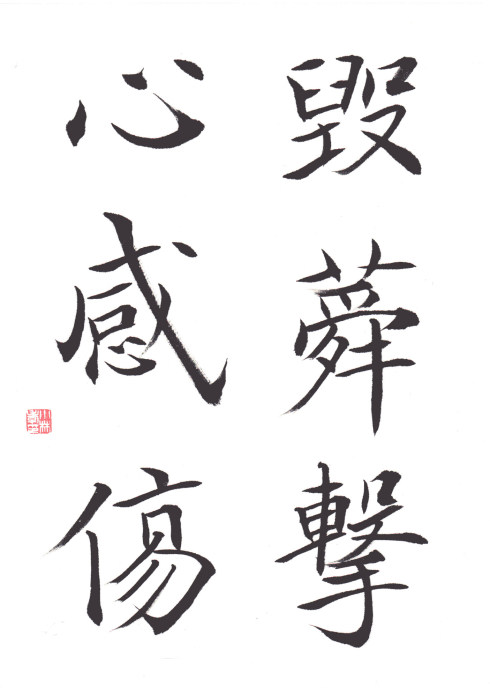 毀蕣撃
心感傷